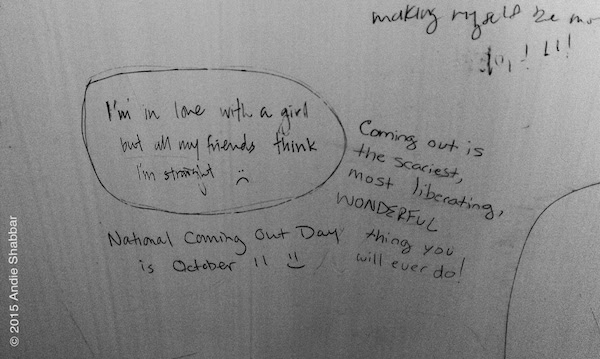 making myself be mo
I'm in love with a girl
but all my friends think
I'm straight :(
Coming out is
the scariest,
most liberating,
WONDERFUL
thing you
will ever do!
National Coming Out Day
is October 11 :)
© 2015 Andie Shabbar